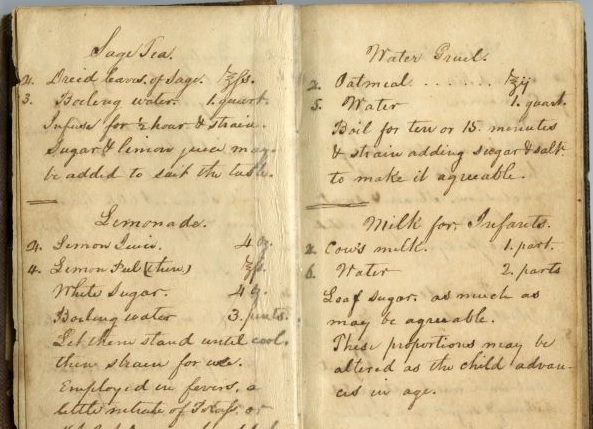 Sage Tea.
2. Dreid leaves of Sage. ℥ſs.
3. Boiling water. 1. quart.
Infuse for ½ hour & strain.
Sugar & limon juice may
be added to suit the taste.
Limonade.
2. Limon Juice. 4 oz.
4. Limon Peel (thin) ℥ſs.
White Sugar. 4 oz.
Boiling water 3. pints.
Let them stand until cool.
then strain for use.
Employed in fevers, a
little nitrate of Potass, or
Water Gruel.
2. Oatmeal ...... ℥ij
5. Water 1. quart.
Boil for ten or 15. minutes
& strain adding sugar & salt
to make it agreeable.
Milk for Infants.
2. Cow's milk. 1. part.
6. Water 2. parts
Loaf sugar. as much as
may be agreeable.
These proportions may be
altered as the child advan-
ces in age.